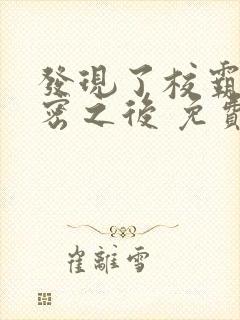 發現了校霸
密之後 免費
崔離雪